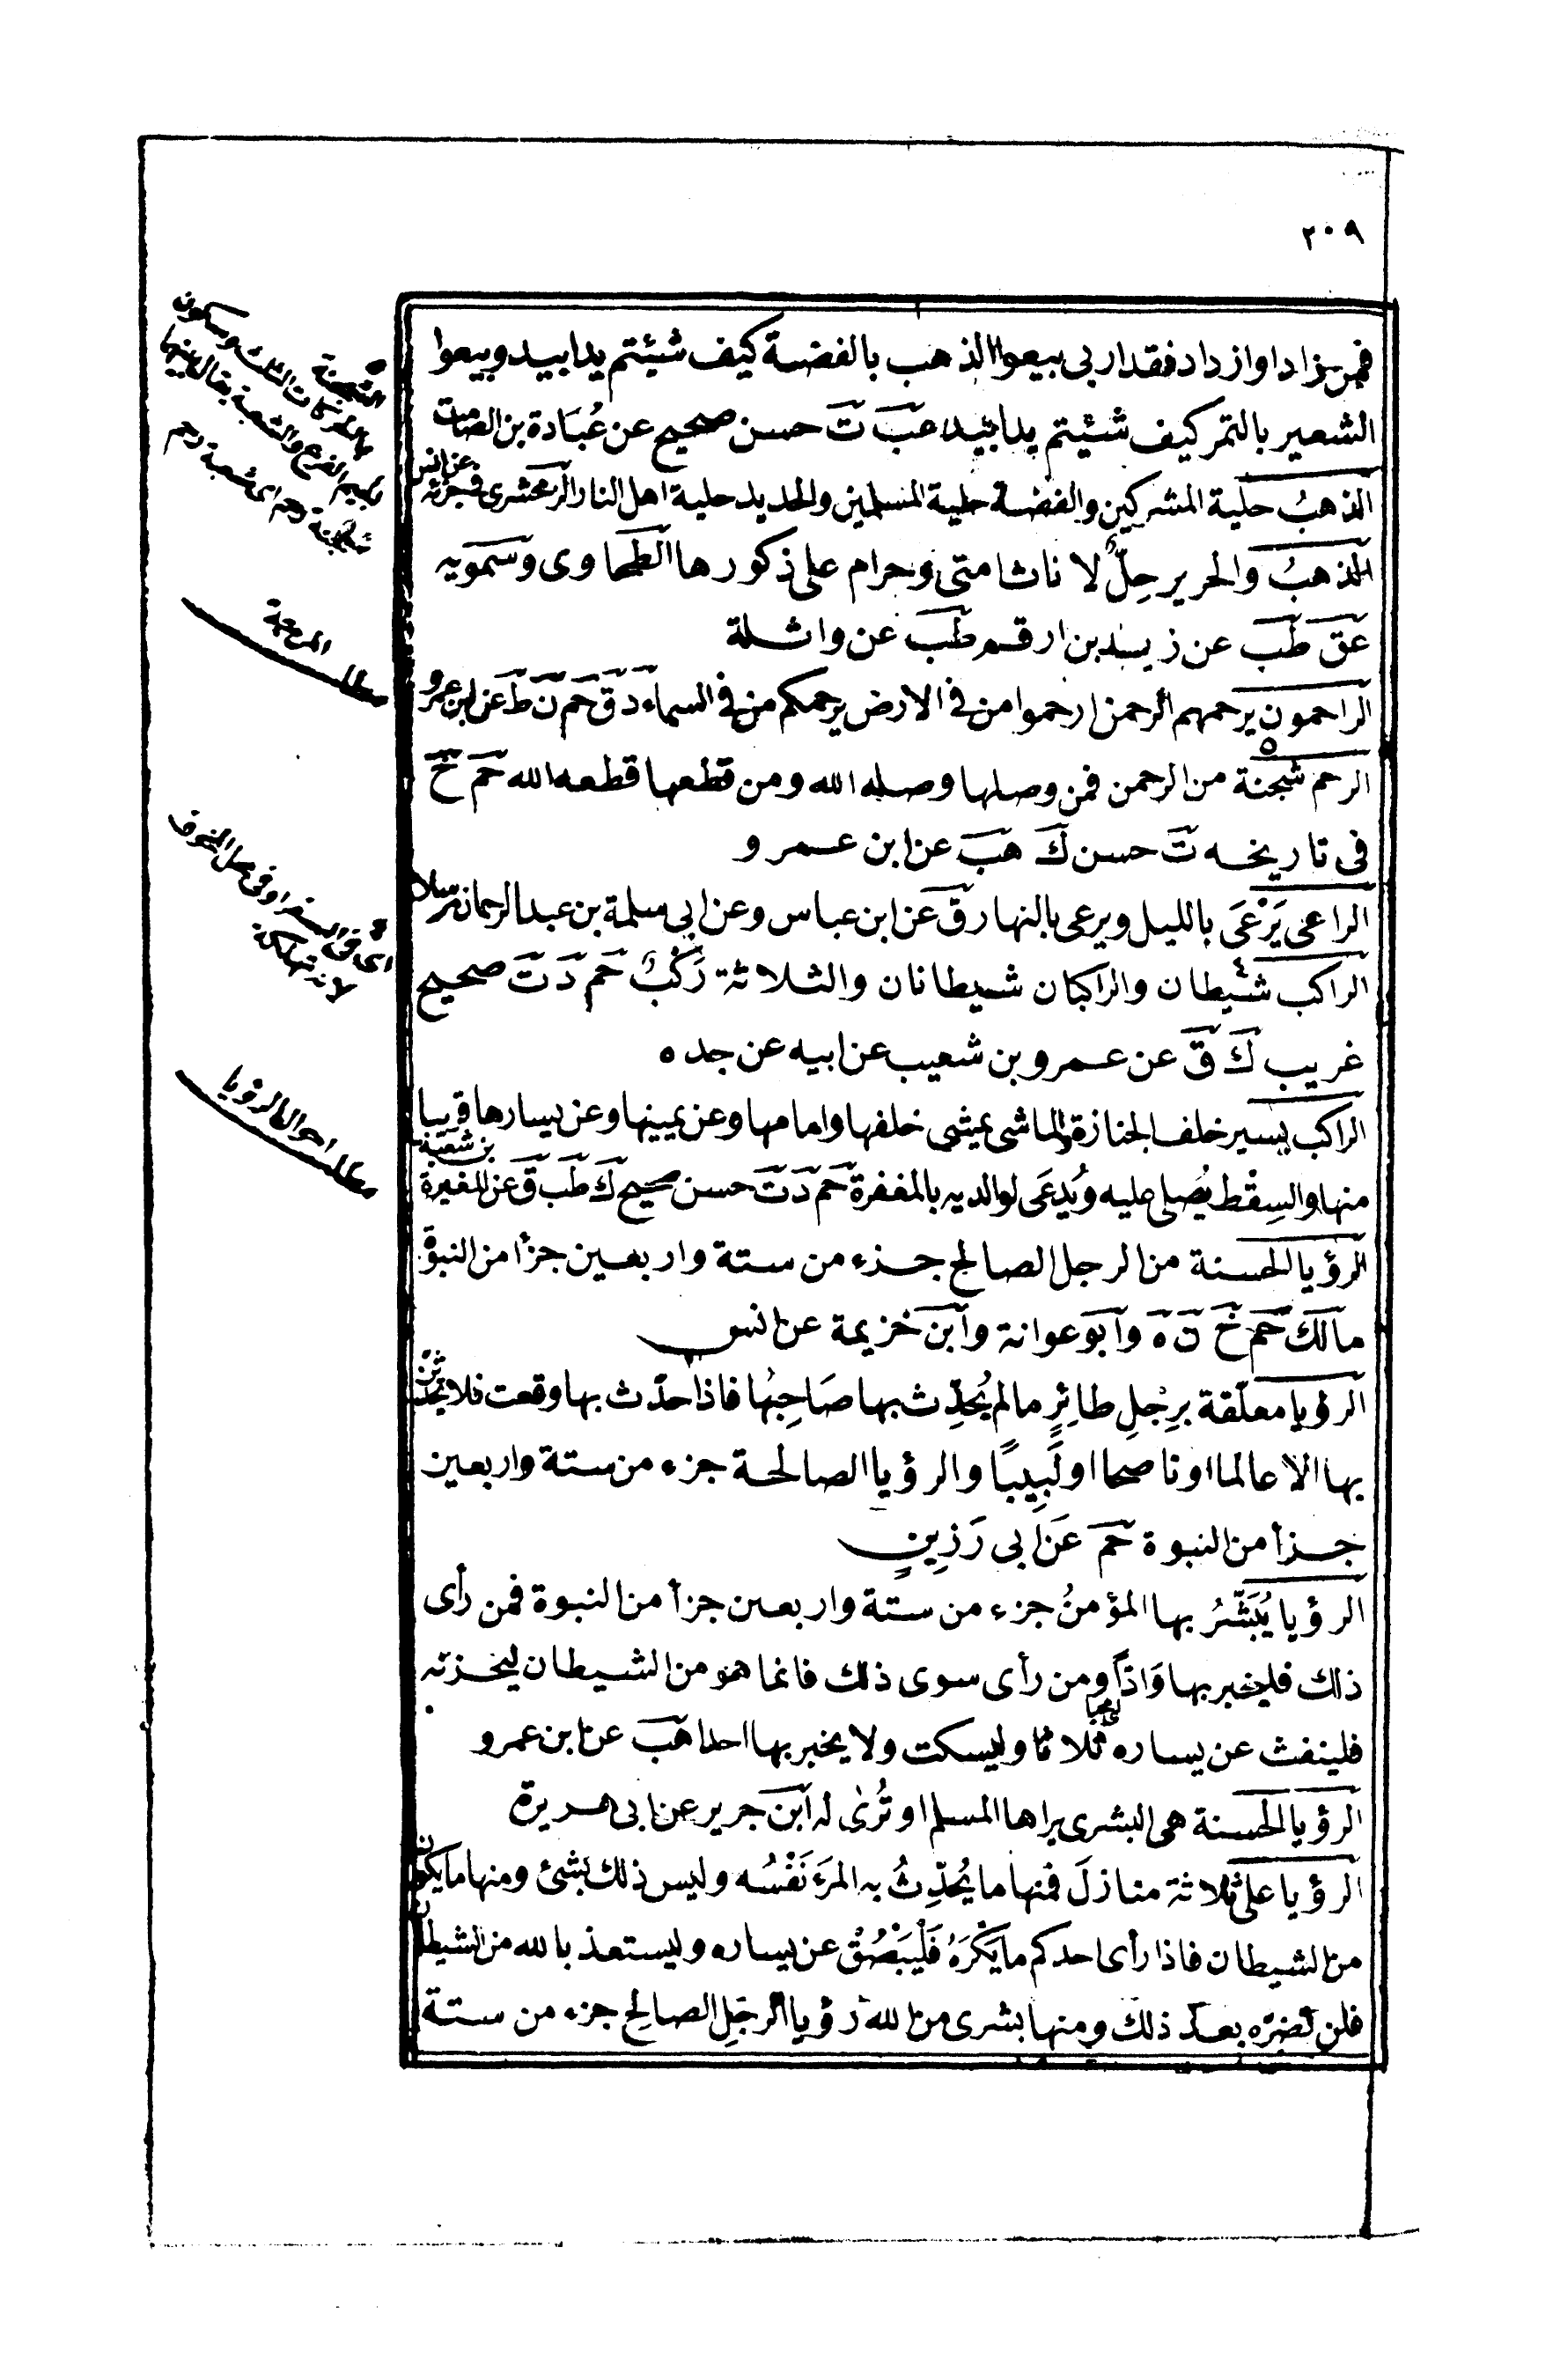 ٢٠٩
فمن زاد او ازداد فقد اربى بيعوا الذهب بالفضة كيف شيئتم يدا بيد وبيعوا
الشعير بالتمر كيف شيئتم يدا بيد عب ت حسن صحيح عن عُبَادة بن الصامت
الذهبُ حلية المشركين والفضة حلية المسلمين والحديد حلية اهل النار الزمخشرى فى جزئه عن انس
الذهبُ والحرير حِلٌّ لاناث امتى وحرام على ذكورها الطحاوى وسَمَويه
عق طب عن زيد بن ارقم طب عن واثلة
الراحمون يرحمهم الرحمن ارحموا من فى الارض يرحمكم من فى السماء د ق حم ن ط عن ابن عمرو
الرحم شجنة من الرحمن فمن وصلها وصله الله ومن قطعها قطعه الله حم خ
فى تاريخه ت حسن ك هب عن ابن عمرو
الراعى يَرْعَى بالليل ويرعى بالنهار ق عن ابن عباس وعن ابى سلمة بن عبد الرحمان مرسلا
الراكب شيطان والراكبان شيطانان والثلاثة رَكْبٌ حم د ت صحيح
غريب ك ق عن عمرو بن شعيب عن ابيه عن جده
الراكب يسير خلف الجنازة والماشى يمشى خلفها وامامها وعن يمينها وعن يسارها قريبا
منها والسِقْط يُصلى عليه ويُدعَى لوالديه بالمغفرة حم د ت حسن صحيح ك طب ق عن المغيرة بن شعبة
الرؤيا الحسنة من الرجل الصالح جزء من ستة واربعين جزأ من النبوة
مالك حم خ ن ه وابو عوانة وابن خزيمة عن انس
الرؤيا معلّقة برِجْلِ طائِرٍ ما لم يُحدِّث بها صَاحِبُها فاذا حدّث بها وقعت فلا تحدثن
بها الا عالما او ناصحا او لَبِيبًا والرؤيا الصالحة جزء من ستة واربعين
جزأ من النبوة حم عن ابى رَزِينٍ
الرؤيا يُبَشَّرُ بها المؤمنُ جزء من ستة واربعين جزأ من النبوة فمن رأى
ذلك فليخبر بها وَادًّا ومن رأى سوى ذلك فانما هو من الشيطان ليحزنه
فلينفث عن يساره ثلاثا وليسكت ولا يخبر بها احدا هب عن ابن عمرو
الرؤيا الحسنة هى البشرى يراها المسلم او تُرىٰ له ابن جرير عن ابى هريرة
الرؤيا على ثلاثة منازلَ فمنها ما يُحدِّثُ به المرَء نَفْسُه وليس ذلك بشئ ومنها ما يكون
من الشيطان فاذا رأى احدكم ما يَكْرَهُ فَلْيَبْصُقْ عن يساره وليستعذ بالله من الشيطان
فلن تضرّه بعد ذلك ومنها بشرى من الله رؤيا الرجلِ الصالح جزء من ستة
الشجنة
بالحركات الثلث وسكون
الجيم الفرع والشعبة يقال بينهما
شجنة رحم اى شعبة رحم
مطلب المرحمة
اى فى السفر او فى محل الخوف
لانه تهلكة
مطلب احوال الرؤيا